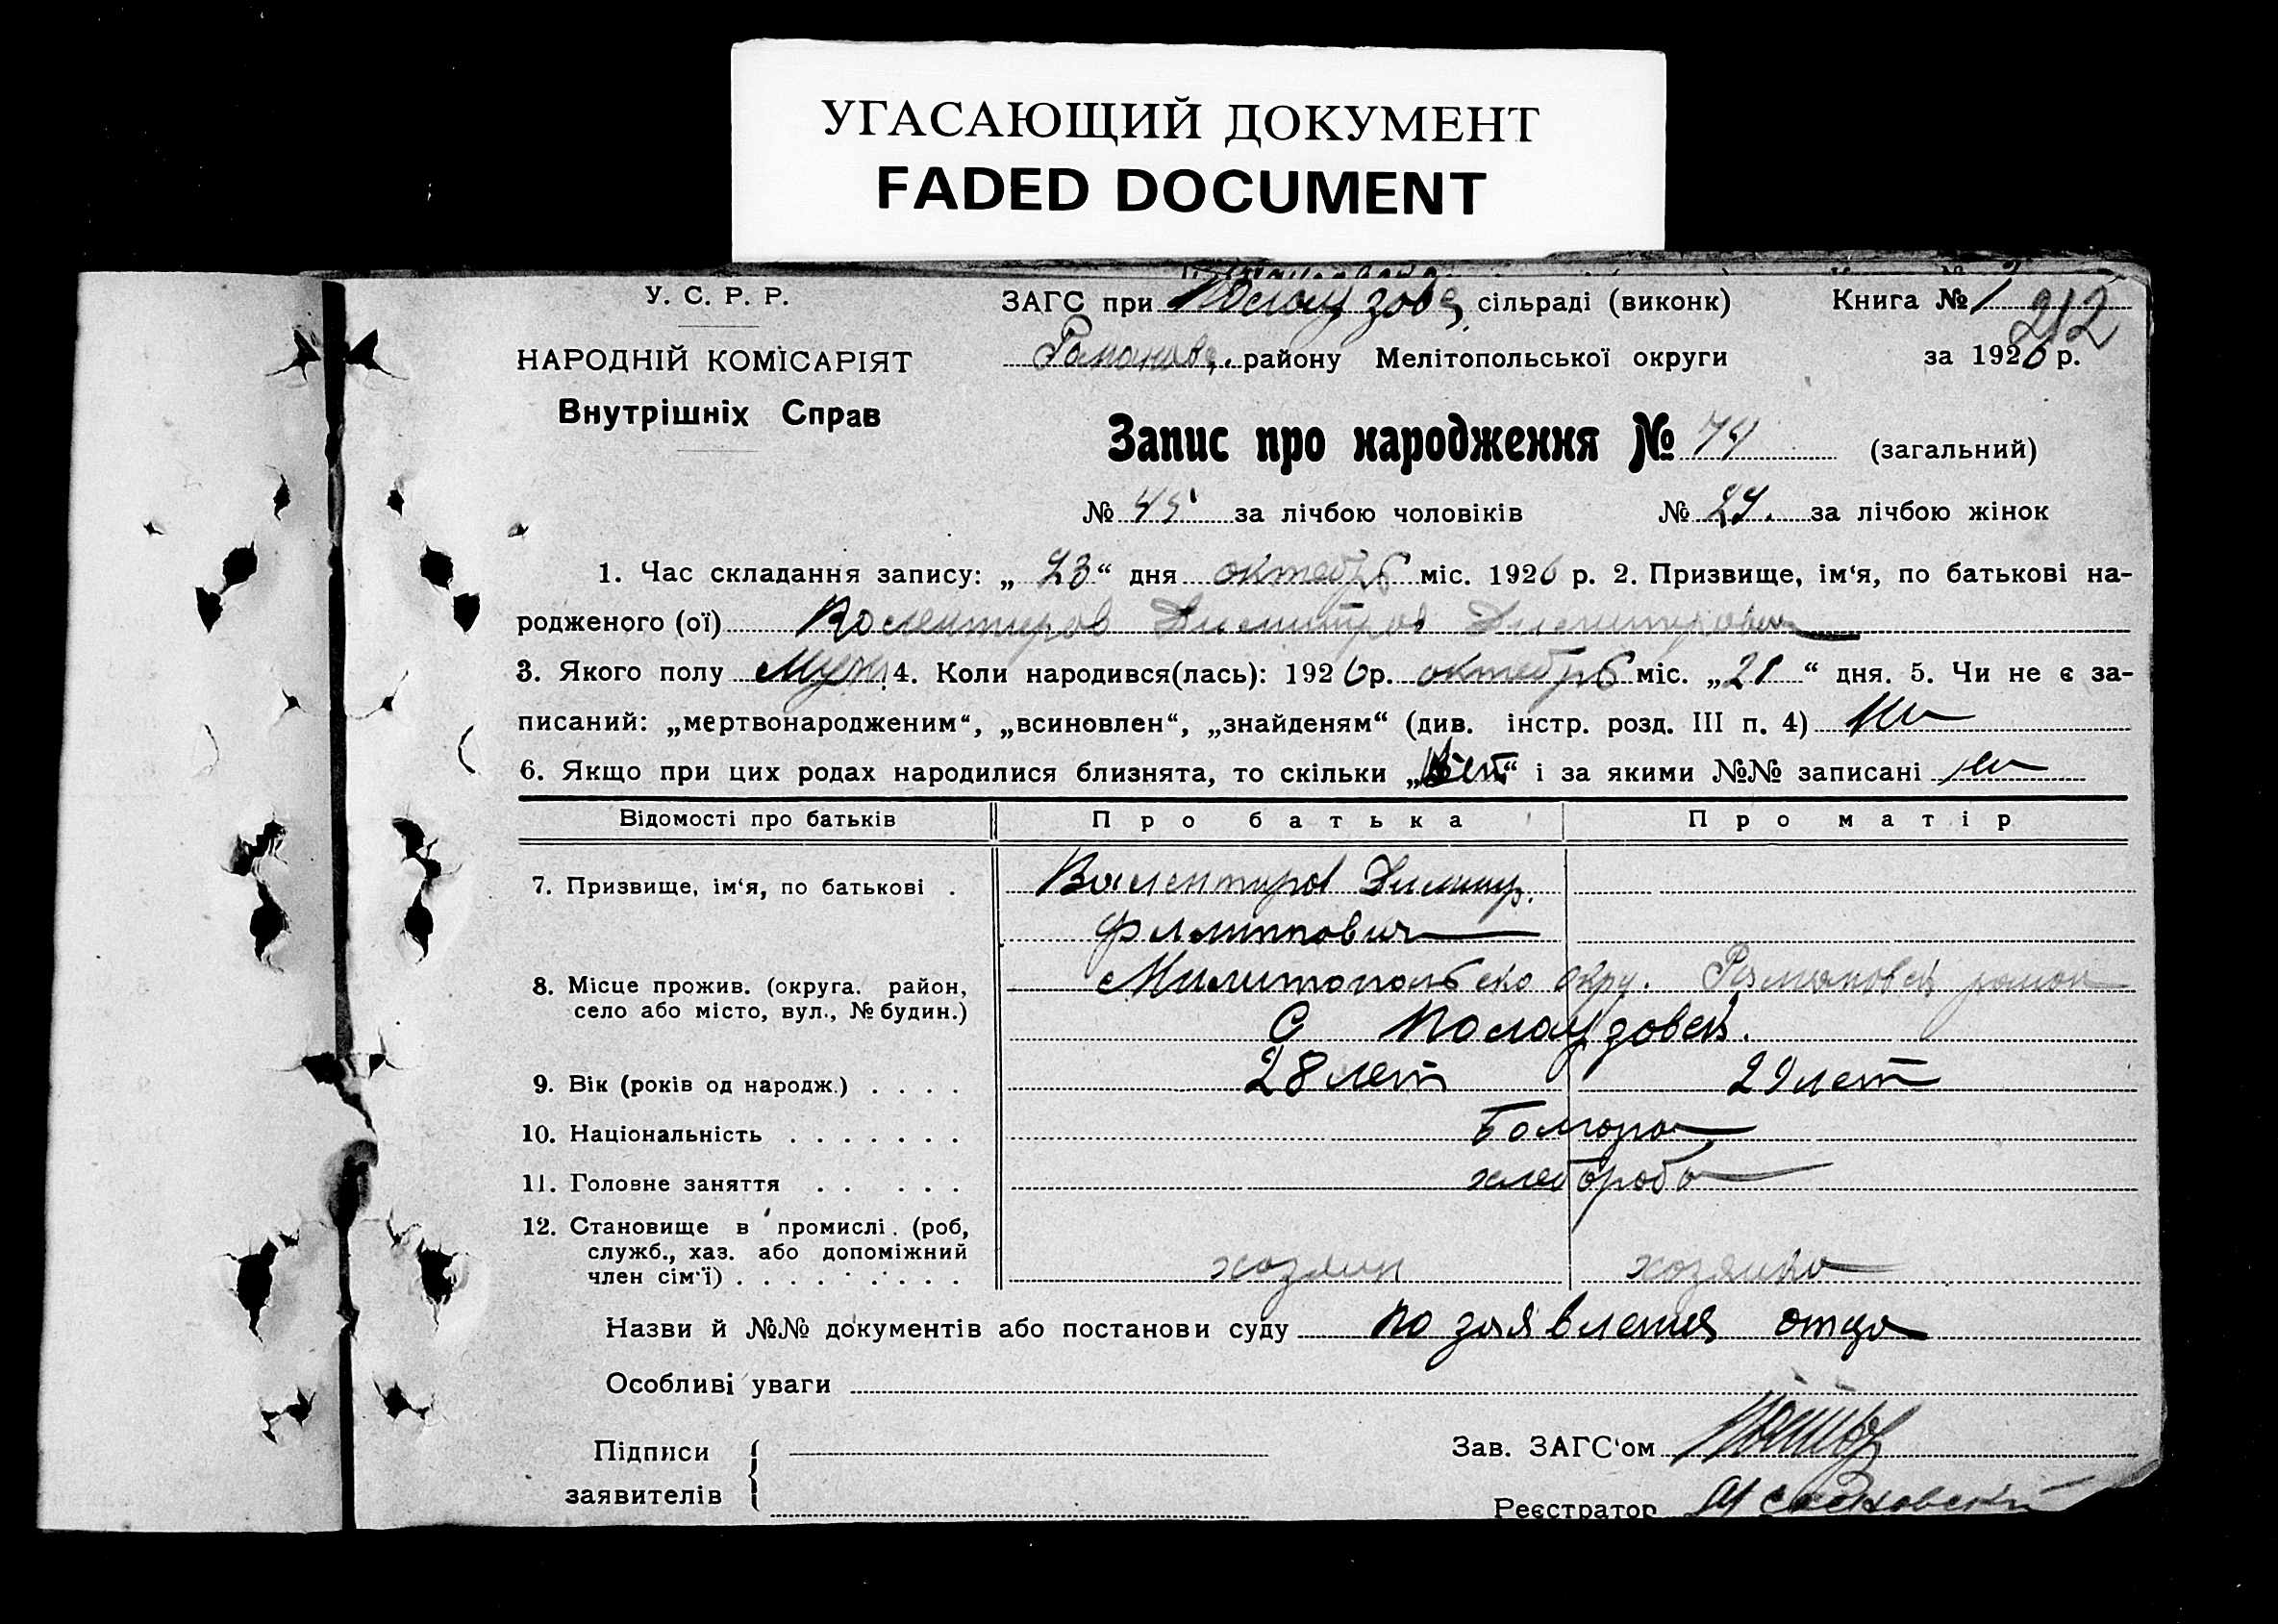 УГАСАЮЩИЙ ДОКУМЕНТ
FADED DOCUMENT
У. С. Р. Р.
НАРОДНІЙ КОМІСАРІЯТ
Внутрішніх Справ
ЗАГС при сільраді (виконк) Книга № 1 212
району Мелітопольської округи за 1926 р.
Запис про народження № 74 (загальний)
№ 45 за лічбою чоловіків № 29. за лічбою жінок
1. Час складання запису: „ 23 “ дня октебрь міс. 1926 р. 2. Призвище, ім‘я, по батькові на-
родженого (ої) Дмитров Дмитрович
3. Якого полу Муж 4. Коли народився(лась): 1926 р. октебрь міс. „ 21 “ дня. 5. Чи не є за-
писаний: „мертвонародженим“, „всиновлен“, „знайденям“ (див. інстр. розд. III п. 4)
6. Якщо при цих родах народилися близнята, то скільки „ “ і за якими №№ записані
Відомості про батьків Про батька Про матір
7. Призвище, ім‘я, по батькові . Валентиров Димитр.
Филиппович
8. Місце прожив. (округа. район, Милитопольско окру. район
село або місто, вул., № будин.) С
9. Вік (років од народж.) . . . . 28 лет 29 лет
10. Національність . . . . . . . Болгора
11. Головне заняття . . . . . . хлебороба
12. Становище в промислі. (роб,
служб., хаз. або допоміжний
член сім‘ї) . . . . . . . . . хозяин хозяика
Назви й №№ документів або постанови суду по заявления отца
Особливі уваги
Підписи
заявителів
Зав. ЗАГС‘ом
Реєстратор